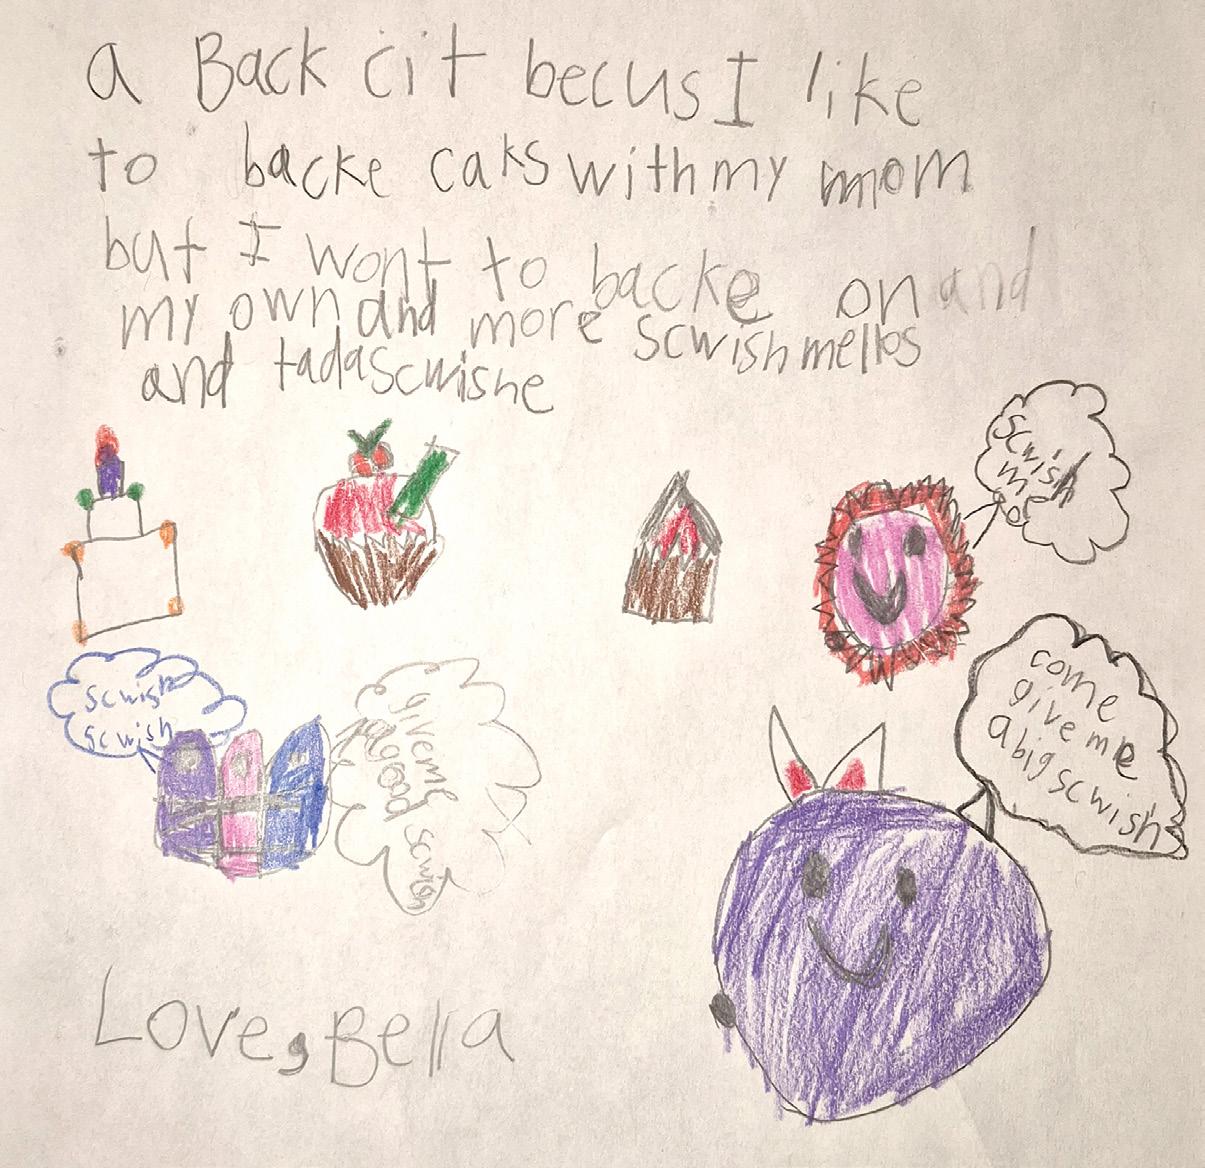 a Back cit becus I like
to backe caks with my mom
but I wont to backe on and
my own and more scwishmellos
and tadascwishe
scwish
me
scwish
scwish
give me
a good scwish
come
give me
a big scwish
Love, Bella